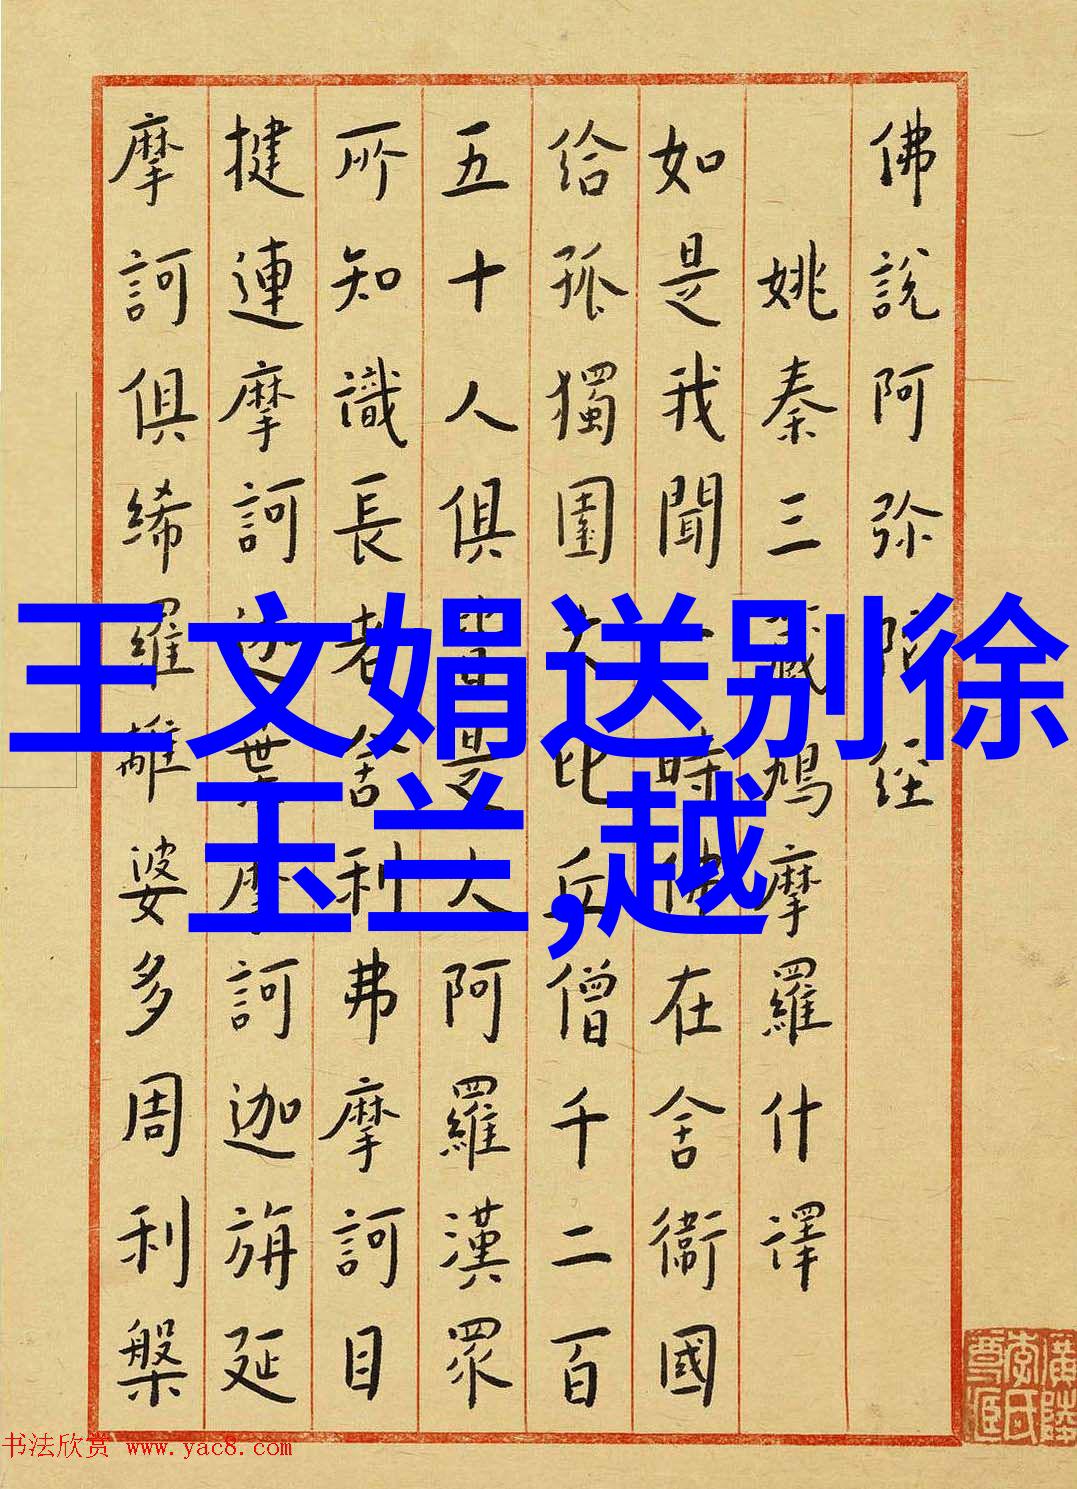 佛說阿弥陀经
姚秦三藏鳩摩羅什譯
如是我聞一時佛在舍衞國
給孤獨園大比丘僧千二百
五十人俱皆是大阿羅漢眾
所知識長老舍利弗摩訶目
揵連摩訶迦葉摩訶迦旃延
摩訶俱絺羅離婆多周利槃
王文娟送别徐
玉兰,越
书法欣赏 www.yac8.com